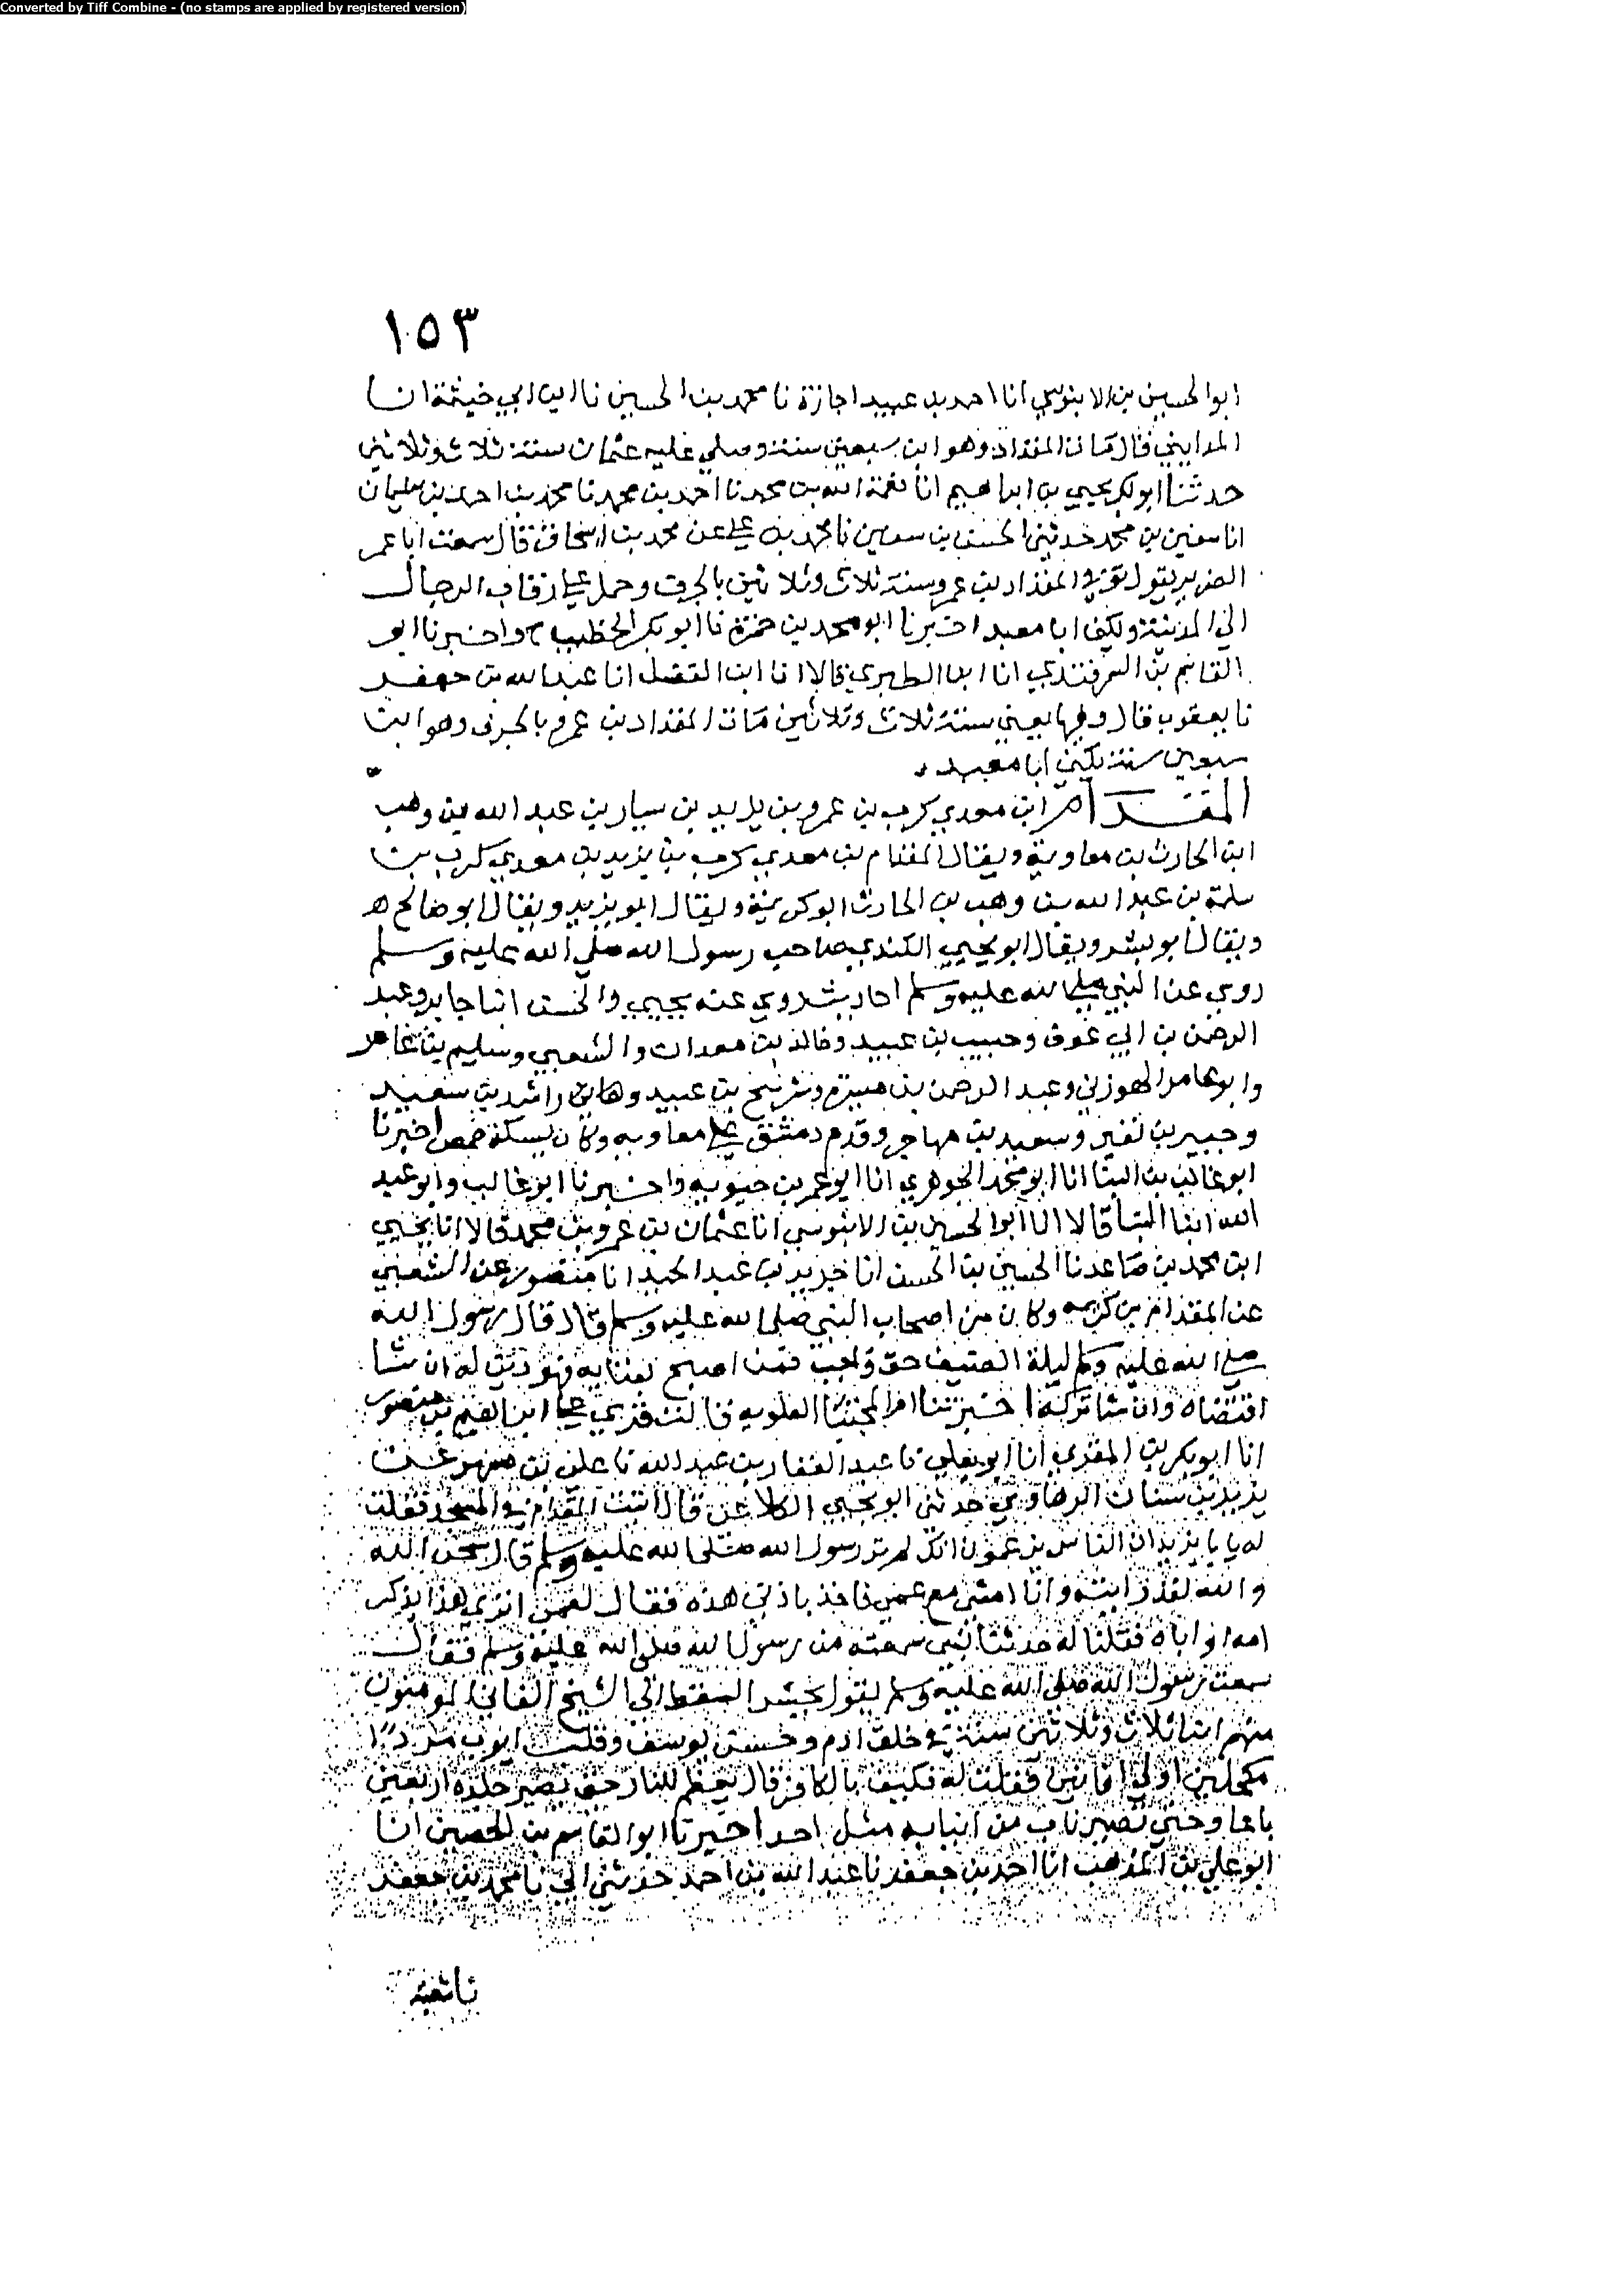 Converted by Tiff Combine - (no stamps are applied by registered version)
١٥٣
ابو الحسين بن الابنوسي انا احمد بن عبيد اجازة نا محمد بن الحسين نا ابن ابي خيثمة انا
المدايني قال مات المقداد وهو ابن سبعين سنة وصلي عليه عثمان سنة ثلاث وثلاثين
حدثنا ابو بكر يحيى بن ابراهيم انا نعمة الله بن محمد نا احمد بن محمد نا محمد بن احمد بن سليمان
انا سفين بن محمد حدثني الحسن بن سفين نا محمد بن علي عن محمد بن اسحاق قال سمعت ابا عمر
الضرير يقول توفي المقداد بن عمرو سنة ثلاث وثلاثين بالجرف وحمل على رقاب الرجال
الى المدينة ويكنى ابا معبد اخبرنا ابو محمد بن حمزة نا ابو بكر الخطيب ح واخبرنا ابو
القاسم بن السمرقندي انا ابن الطبري قالا انا ابن الفضل انا عبد الله بن جعفر
نا يعقوب قال وفيها يعني سنة ثلاث وثلاثين مات المقداد بن عمرو بالجرف وهو ابن
سبعين سنة يكنى ابا معبد
المقدام ابن معدي كرب بن عمرو بن يزيد بن سيار بن عبد الله بن وهب
ابن الحارث بن معاوية ويقال المقدام بن معدي كرب بن يزيد بن معدي كرب بن
سلمة بن عبد الله بن وهب بن الحارث ابو كريمة ويقال ابو يزيد ويقال ابو صالح
ويقال ابو بشر ويقال ابو يحيى الكندي صاحب رسول الله صلى الله عليه وسلم
روي عن النبي صلى الله عليه وسلم احاديث روي عنه يحيى والحسن ابنا جابر وعبد
الرحمن بن ابي عوف وحبيب بن عبيد وخالد بن معدان والشعبي وسليم بن عامر
وابو عامر الهوزني وعبد الرحمن بن ميسرة وشريح بن عبيد وهانئ راشد بن سعيد
وجبير بن نفير وسعيد بن مهاجر وقدم دمشق على معاويه وكان يسكن حمص اخبرنا
ابو غالب بن البنا انا ابو محمد الجوهري انا ابو عمر بن حيويه واخبرنا ابو غالب وابو عبد
الله ابنا البنا قالا انا ابو الحسين بن الابنوسي انا عثمان بن عمرو بن محمد قالا انا يحيى
ابن محمد بن صاعد نا الحسين بن الحسن انا جرير بن عبد الحميد انا منصور عن الشعبي
عن المقدام بن كريمه وكان من اصحاب النبي صلى الله عليه وسلم قال قال رسول الله
صلى الله عليه وسلم ليلة الضيف حق واجب فمن اصبح بفنايه فهو دين له ان شا
اقتضاه وان شا تركه اخبرتنا ام المجتبا العلويه قالت قري على ابراهيم بن منصور
انا ابو بكر بن المقري انا ابو يعلى نا عبد الغفار بن عبد الله نا علي بن مسهر عن
يزيد بن سنان الرهاوي حدثني ابو يحيى الكلاعي قال اتيت المقدام في المسجد فقلت
له يا با يزيد ان الناس يزعمون انك لم تر رسول الله صلى الله عليه وسلم قال سبحن الله
والله لقد رايته وانا امشي مع عمي فاخذ باذني هذه فقال لعمي اترى هذا يذكر
امه او اباه فقلنا له حدثنا بشي سمعته من رسول الله صلى الله عليه وسلم فقال
سمعت رسول الله صلى الله عليه وسلم يقول يحشر السقط الى الشيخ الفاني المومنون
منهم ابنا ثلاث وثلاثين سنة في خلق ادم وحسن يوسف وقلب ايوب مردا
مكحلين اولي افانين فقلت له فكيف بالكافر قال يعظم للنار حتى يصير جلده اربعين
باعا وحتى تصير ناب من انيابه مثل احد اخبرنا ابو القاسم بن الحصين انا
ابو علي بن المذهب انا احمد بن جعفر نا عبد الله بن احمد حدثني ابي نا محمد بن جعفر
نا شعبة